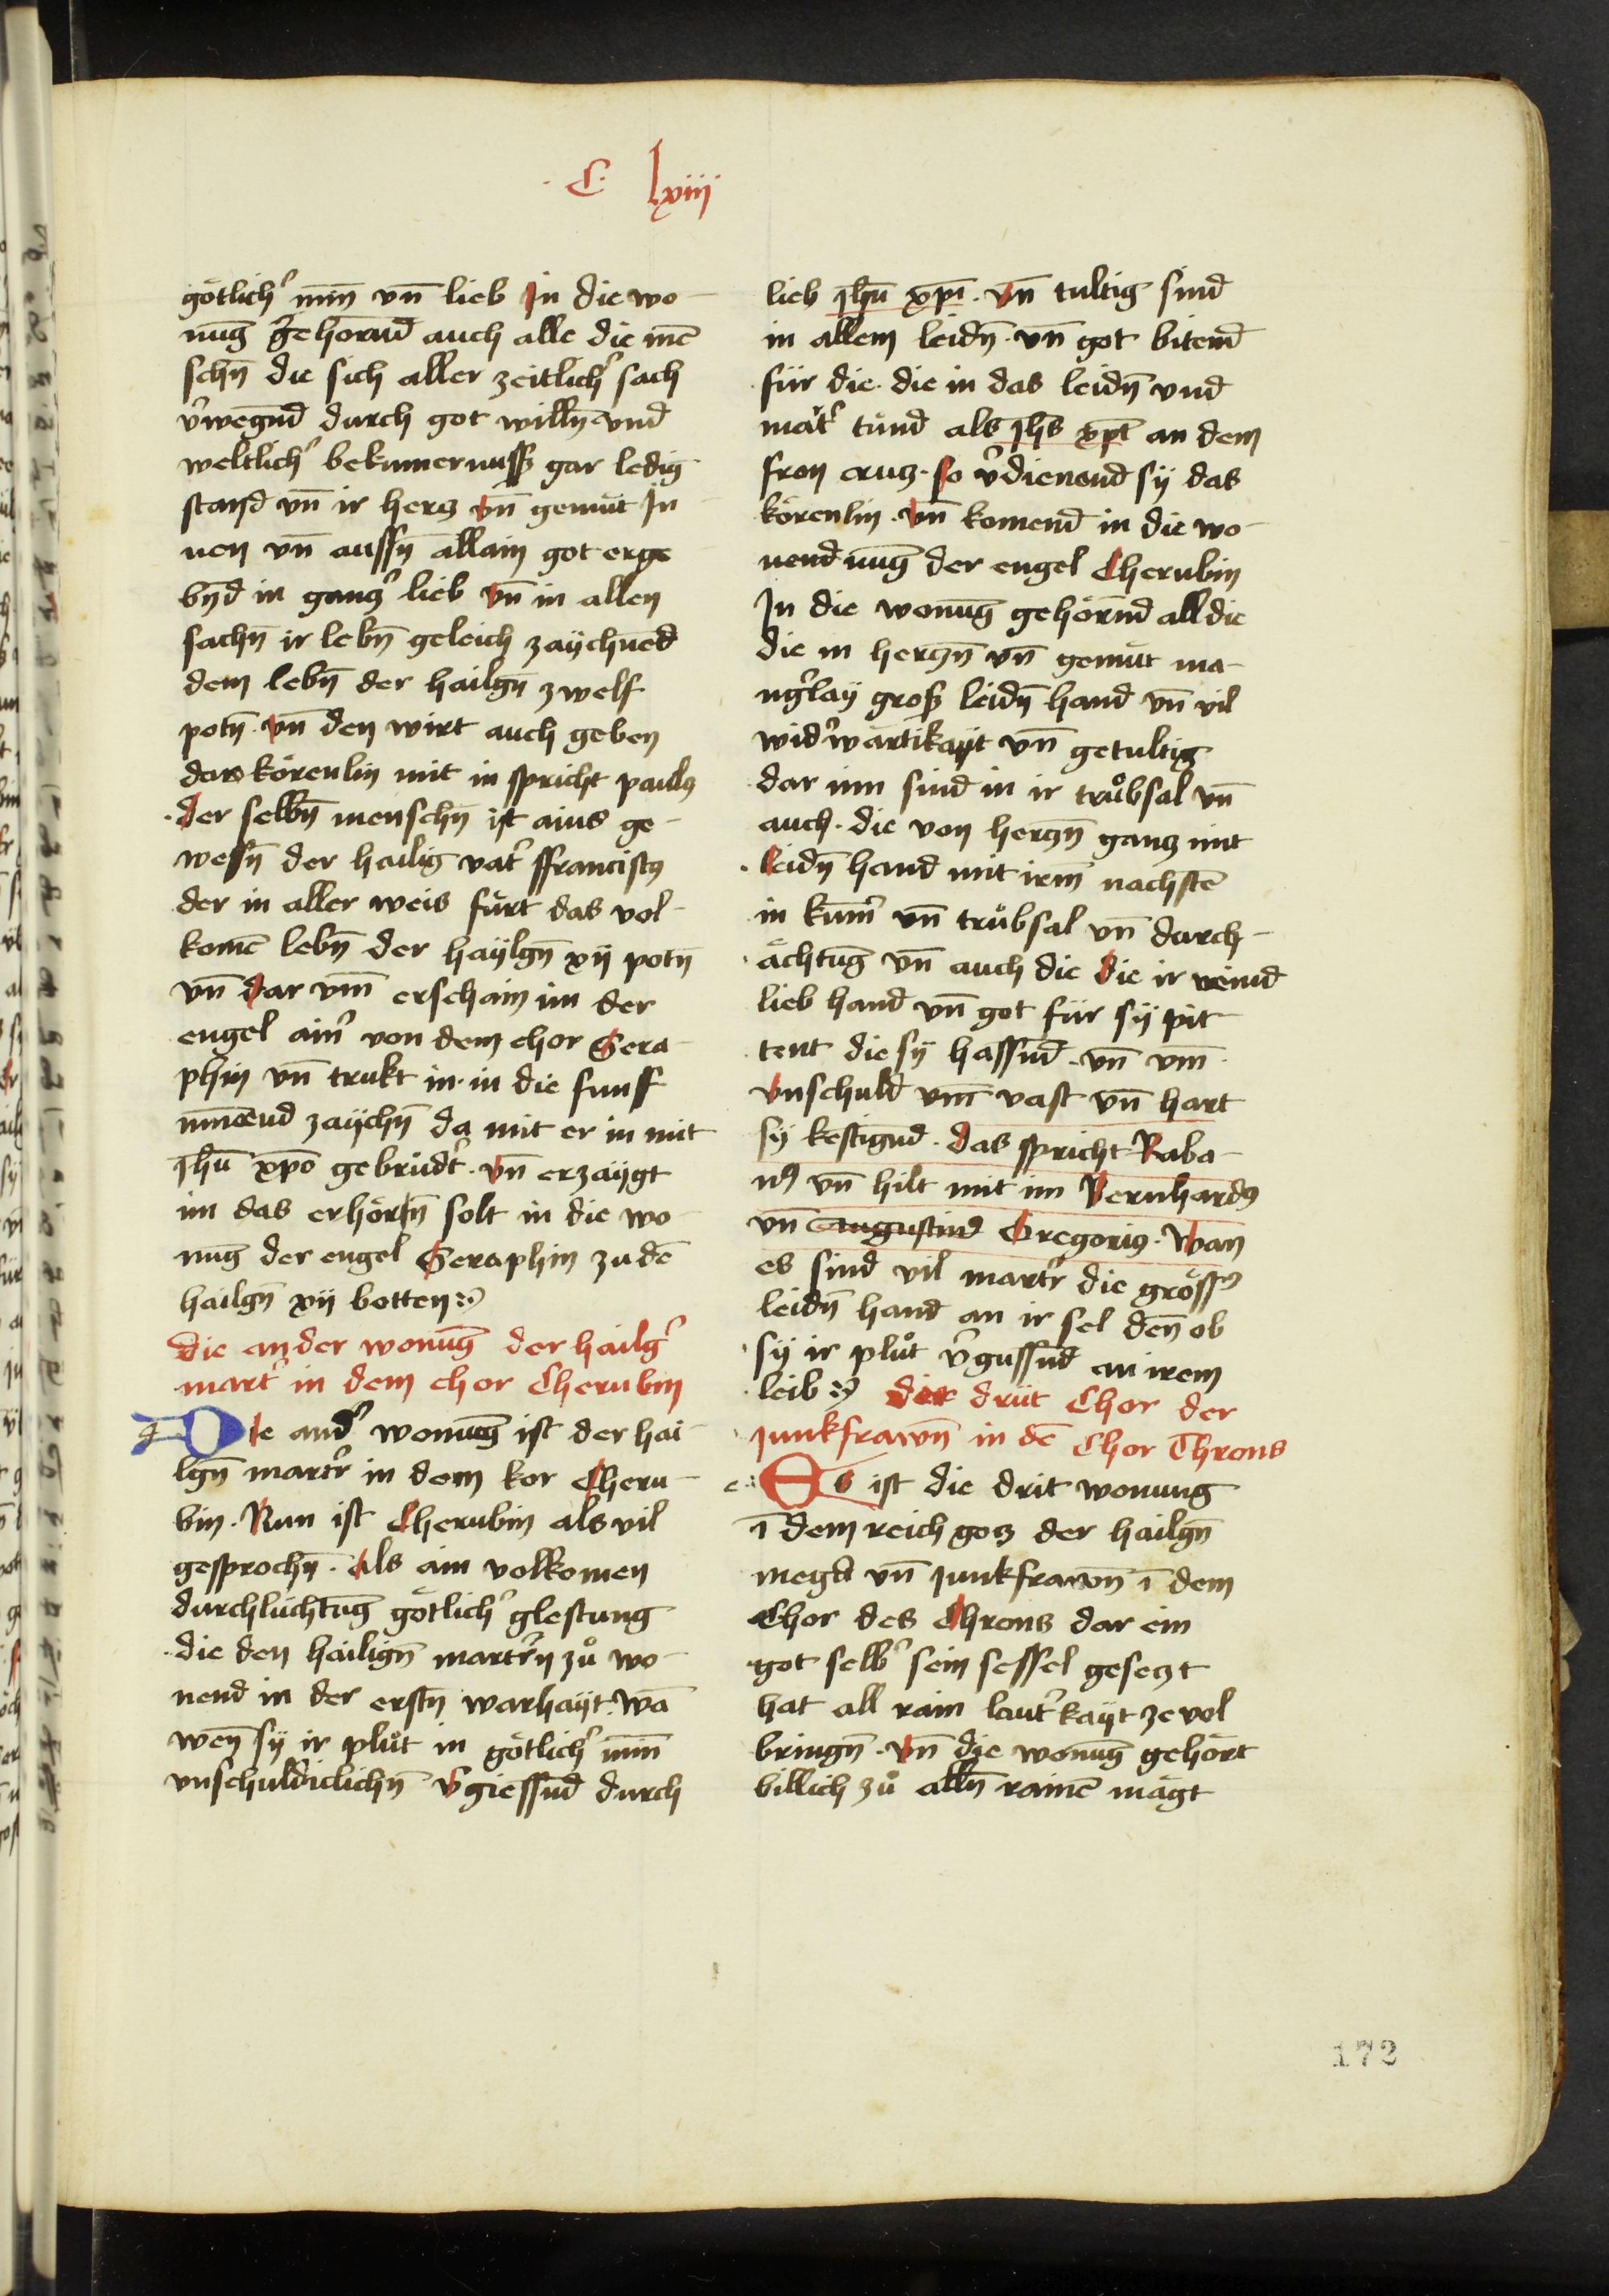 · C · lxiij
götlich' min̄ vn̄ lieb In die wo-
nūg gehornd auch alle die mē
schn̄ die sich aller zeitlich' sach
v'wegn̄d durch got willn̄ vnd
weltlich' bekumernuss gar ledig
stand vn̄ ir hercz vn̄ gemüt In
nen vn̄ aussn̄ allain got erge
bn̄d in gancz' lieb vn̄ in allen
sachn̄ ir lebn̄ geleich zaychned
dem lebn̄ der hailgn̄ zwelf
potn̄ · vn̄ den wirt auch geben
das körenlin mit in spricht paulus
· der selbn̄ menschn̄ ist ains ge-
wesn̄ der hailig vat' ffranciscus
der in aller weis fürt das vol-
komē lebn̄ der haylgn̄ xij potn̄
vn̄ dar vm̄ erschain im der
engel ain' von dem chor Sera-
phin vn̄ trukt in · in die funff
minēnd zaychn̄ da mit er in mit
Jhū xpō gebrüdt' · vn̄ erzaygt
im das erhörn̄ solt in die wo-
nūg der engel Seraphin zu dē
hailgn̄ xij botten
die an der wonūg der hailg'
mart' in dem chor Cherubin
Die and' wonūg ist der hai-
lgn̄ martr' in dem kor Cheru-
bin · Nun ist Cherubin als vil
gesprochn̄ · als ain volkomen
durchlüchtūg götlich' glestung
· die den hailign̄ martr'n zů wo-
nend in der erstn̄ warhayt · wā
wen̄ sy ir plůt in götlich' min̄
vnschuldiclichn̄ v'giessnd durch
lieb Jhū xpī · vn̄ tultig sind
in allem leidn̄ · vn̄ got bitend
für die · die in das leidn̄ vnd
mat' tünd als Jhs xpt̄ an dem
fron crucz · so v'dienend sy das
körenlin · vn̄ komend in die wo-
nend nūg der engel Cherubin
In die wonūg gehörnd all die
die in herczn̄ vn̄ gemüt ma-
ng'lay gross leidn̄ hand vn̄ vil
wid'wärtikayt vn̄ getultig
dar inn sind in ir trůbsal vn̄
auch · die von herczn̄ gancz mit
· leidn̄ hand mit irm̄ nachstē
in kum̄' vn̄ trůbsal vn̄ durch-
ächtūg vn̄ auch die die ir veind
lieb hand vn̄ got für sy pit-
tent die sy hassnd · vn̄ vm̄
vnschuld vm̄ vast vn̄ hart
sy kestignd · das spricht Raba-
nus vn̄ hilt mit im Bernhardus
vn̄ augustinus Gregorius · Wan
es sind vil martr' die gröss'
leidn̄ hand an ir sel den̄ ob
sy ir plůt v'gussnd an irem
leib die drüt Chor der
junkfrawn̄ in dē Chor Throns
Es ist die drit wonung
ī dem reich gocz der hailgn̄
megd vn̄ junkfrawn̄ ī dem
Chor des Throns dar ein
got selb' sein sessel geseczt
hat all rain laut'kayt ze vol
bringn̄ · vn̄ die wonūg gehört
billich zů alln̄ rainē mägt
172